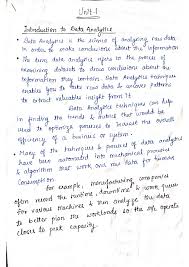 Unit-1
Introduction to Data Analytics
• Data Analytics is the science of analyzing raw data
in order to make conclusions about the information
• The term data analytics refers to the process of
examining datasets to draw conclusions about the
information they contain. Data Analytic techniques
enable you to take raw data & uncover patterns
to extract valuable insight from it.
• Data Analytics techniques can help
in finding the trends & metrics that would be
used to optimize processes to increase the overall
efficiency of a business or system.
• Many of the techniques & process of data analytics
have been automated into mechanical process
& algorithms that work over raw data for human
Consumption
For example, manufacturing companies
often record the runtime, downtime & work queue
for various machines & then analyze the data
to better plan the workloads so the m/c operate
closer to peak capacity.